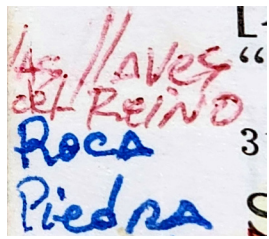 las llaves
del REiNO
Roca
Piedra
“
3